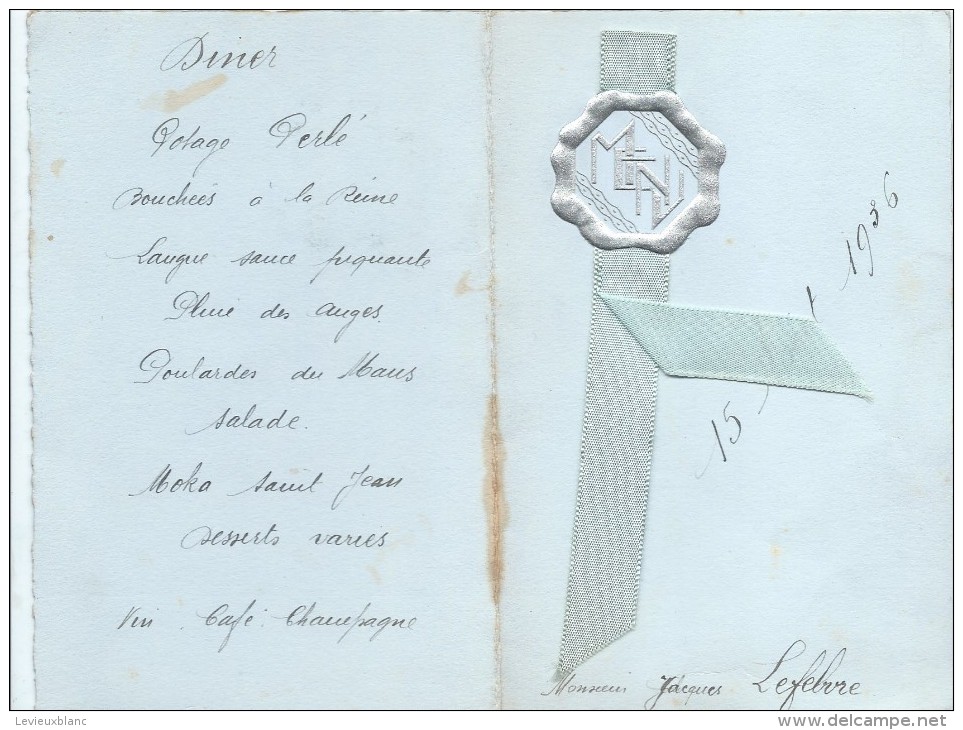 Diner
Potage Perlé
Bouchées à la Reine
Langue sauce piquante
Pluie des anges.
Poulardes du Mans
salade.
Moka saint Jean
Desserts variés
Vin. Café. Champagne
MENU
15
1936
Monsieur Jacques Lefebvre
Levieuxblanc
www.delcampe.net